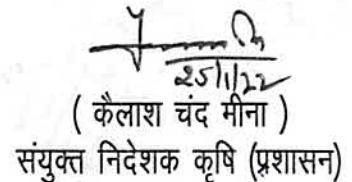 25/1/22
( कैलाश चंद मीना )
संयुक्त निदेशक कृषि (प्रशासन)